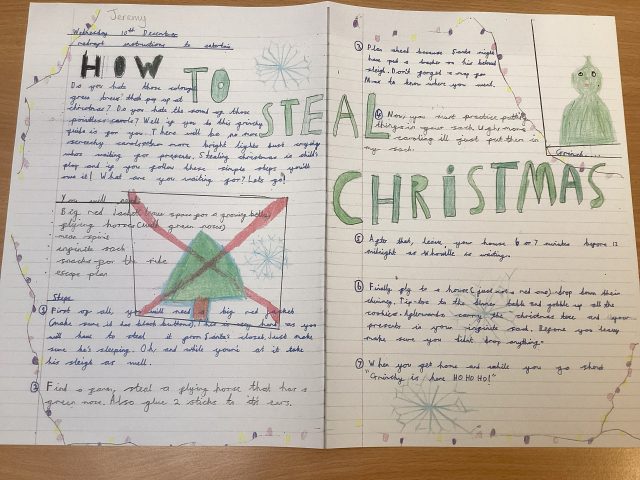 Jeremy
Wednesday 13th December
instructions to entertain
HOW TO STEAL CHRISTMAS
Do you hate those colourful
green trees that pop up at
christmas? Do you hate the sound of those
pointless carols? Well if you do this grinchy
guide is for you. There will be no more
screechy carols, no more bright lights but anybody
who's waiting for presents. Stealing christmas is childs
play and if you follow these simple steps you'll
own it! What are you waiting for? Lets go!
You will need
Big red jacket (have space for a growing belly)
flying horses (with green noses)
mean spirit
infinite sack
snacks for the ride
escape plan
Steps
① First of all, you will need a big red jacket
(make sure it has black buttons). This is very hard as you
will have to steal it from Santa's closet. Just make
sure he's sleeping. Oh and while you're at it take
his sleigh as well.
② Find a farm, steal a flying horse that has a
green nose. Also glue 2 sticks to its ears.
③ Plan ahead because Santa might
have put a tracker on his beloved
sleigh. Don't forget a map for
Mine to know where you went.
④ Now, you must practice putting
things in your sack. Ughh more
carolling ill just put them in
my sack.
Grinch...
⑤ After that, leave your house 6 or 7 minutes before 12
midnight as Whoville is waiting.
⑥ Finally fly to a house (just not a red one) drop down their
chimney. Tip-toe to the dinner table and gobble up all the
cookies. Afterwards carry the christmas tree and your
presents in your infinite sack. Before you leave
make sure you didnt drop anything.
⑦ When you get home and while you go shout
"Grinchy is here HO HO HO!"